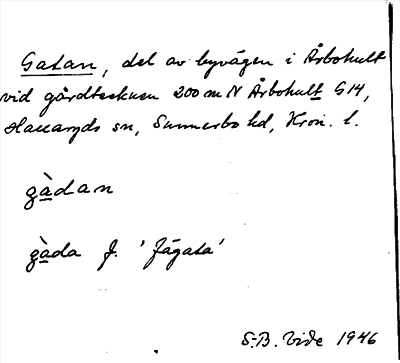 Gatan, del av byvägen i Årbohult
vid gårdtecknen 200 m N Årbohult G 14,
Hallaryds sn, Sunnerbo hd, Kron. l.
gàdan
gàda f. 'fägata'
S-B. Vide 1946